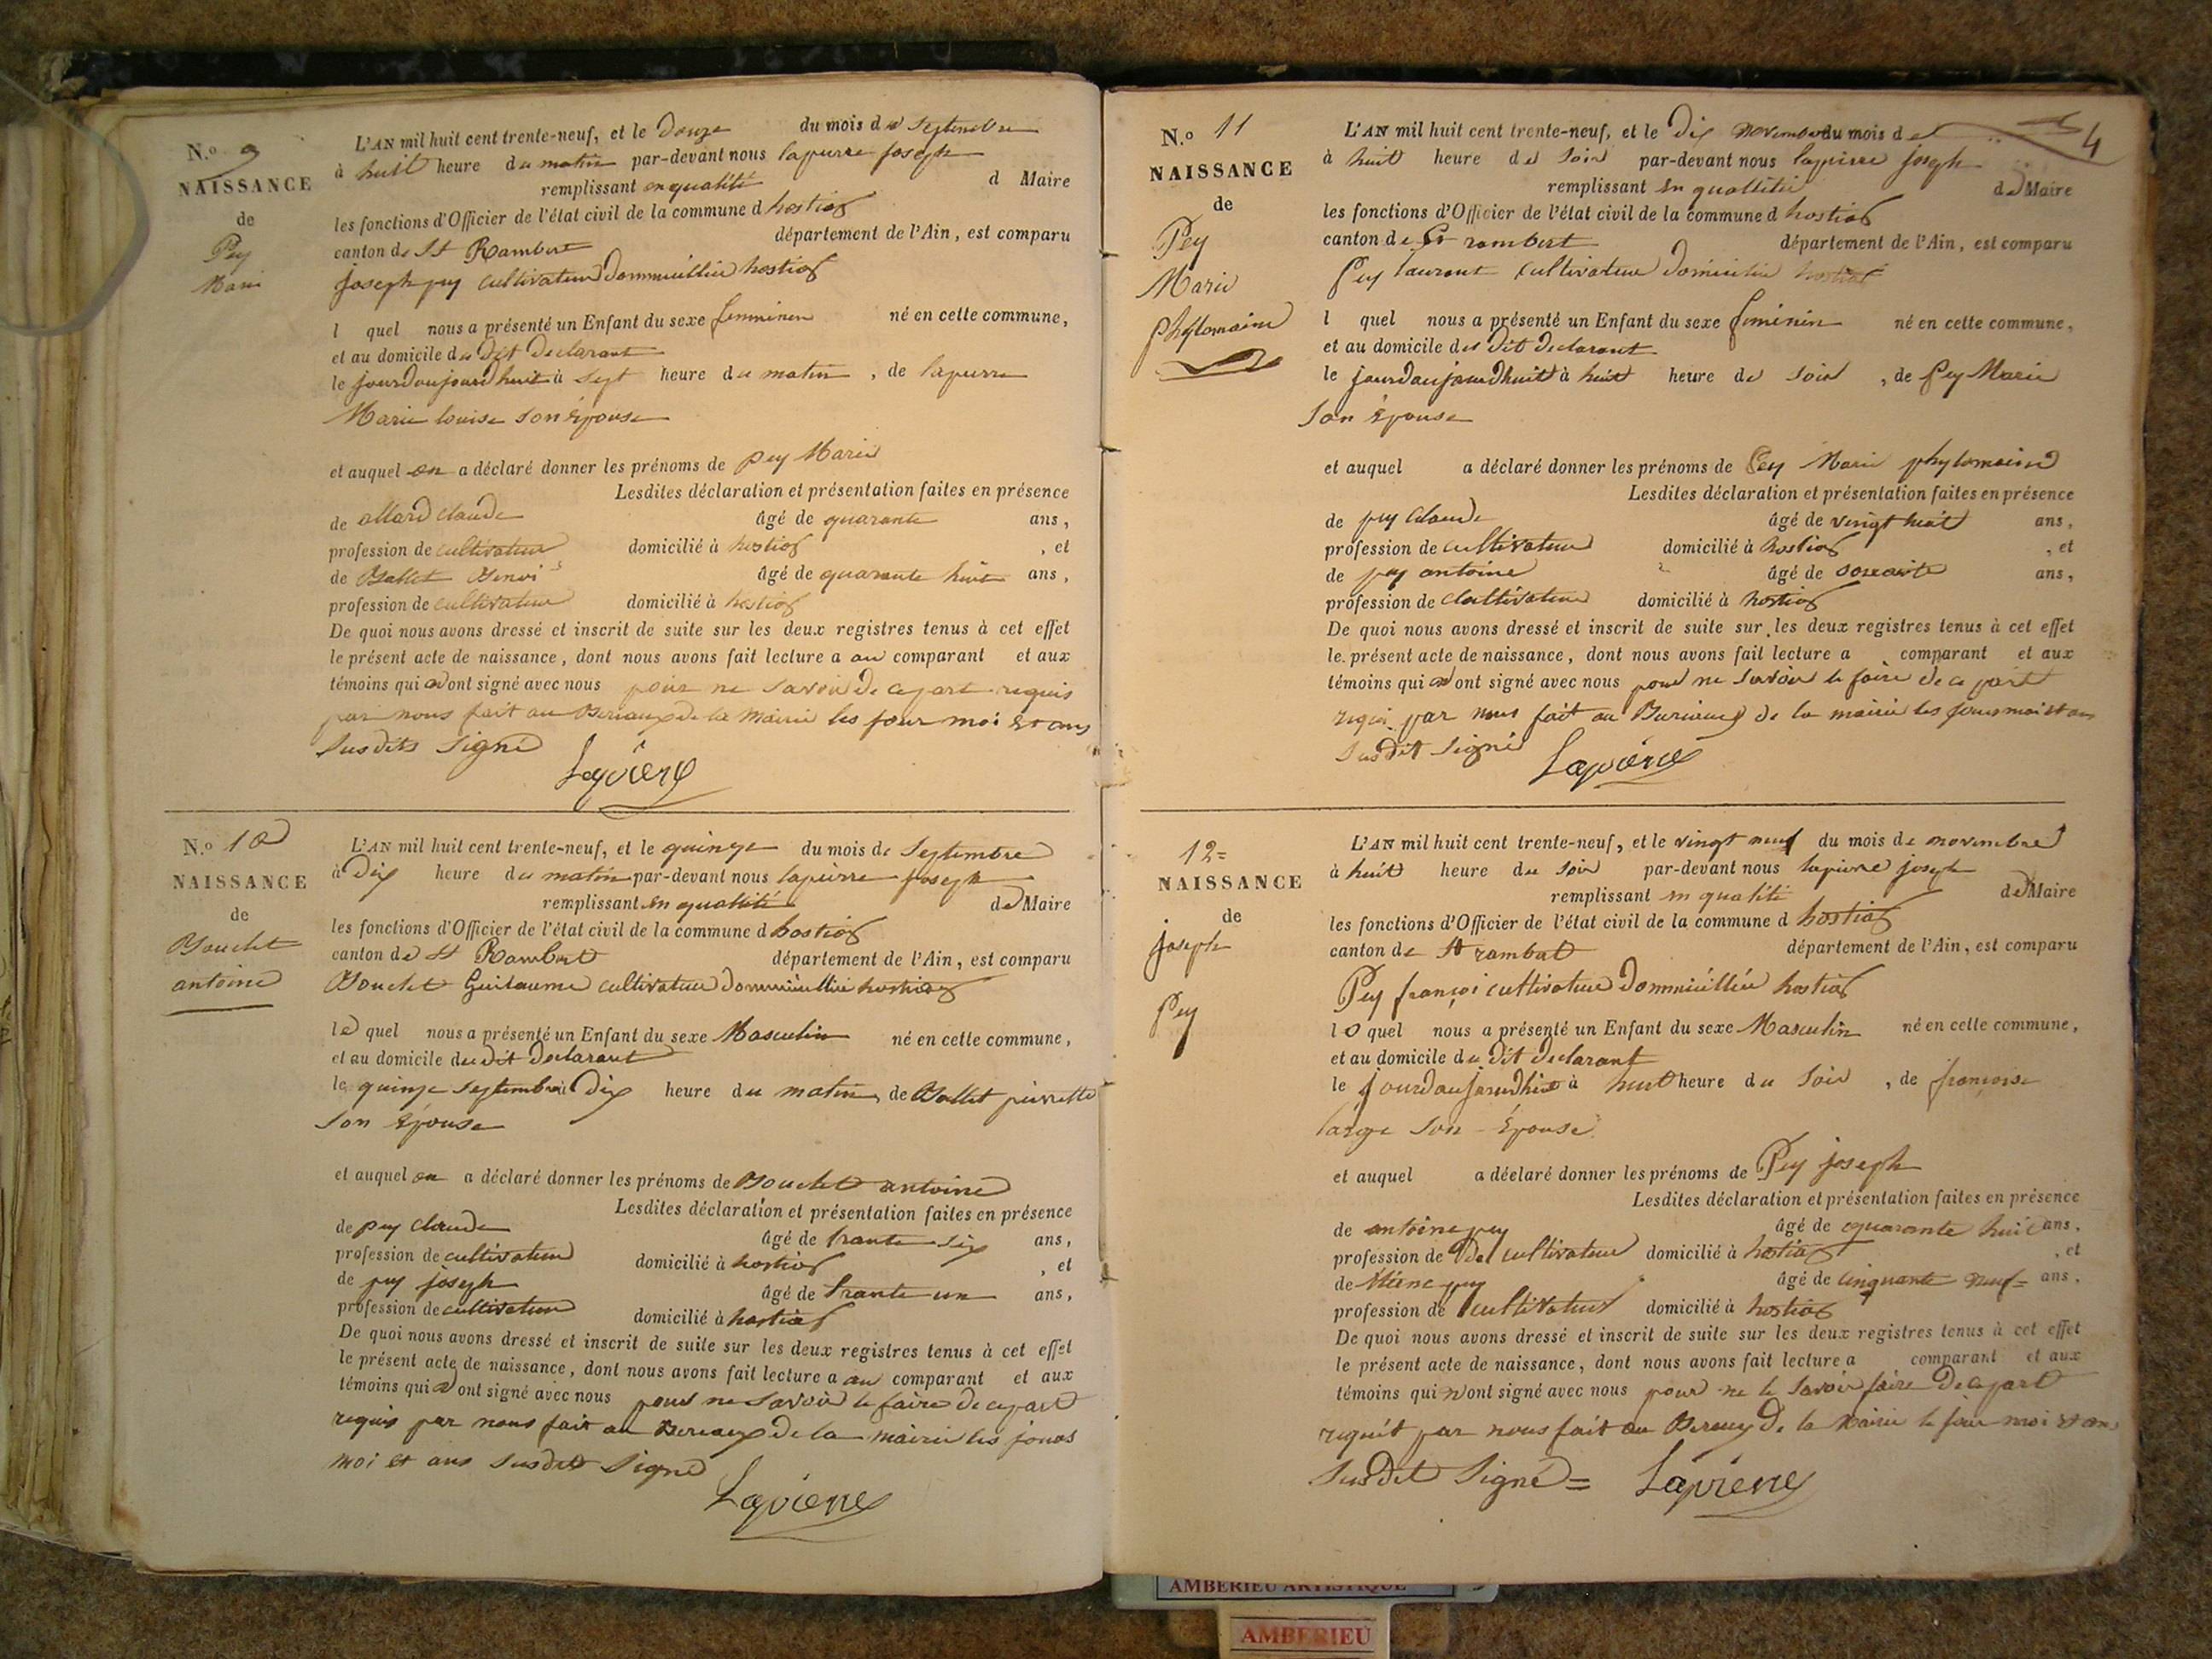 N.o 9
NAISSANCE
de
Pey
Marie
L'AN mil huit cent trente-neuf, et le Douze du mois de Septembre
à huit heure du matin par-devant nous lapierre joseph
remplissant en qualité d Maire
les fonctions d'Officier de l'état civil de la commune d hostias
canton de St Rambert département de l'Ain, est comparu
joseph pey cultivateur Dommicillier hostias
l quel nous a présenté un Enfant du sexe femminin né en cette commune,
et au domicile du Dit Declarant
le jourdaujourdhuit à sept heure du matin, de lapierre
Marie louise son épouse
et auquel on a déclaré donner les prénoms de pey Marie
Lesdites déclaration et présentation faites en présence
de allard claude âgé de quarante ans,
profession de cultivateur domicilié à hostias, et
de Ballet âgé de quarante huit ans,
profession de cultivateur domicilié à hostias
De quoi nous avons dressé et inscrit de suite sur les deux registres tenus à cet effet
le présent acte de naissance, dont nous avons fait lecture a au comparant et aux
témoins qui n'ont signé avec nous pour ne savoir de ce part requis
par nous fait au Beriaux de la Mairie les jour moi et ans
susdits signé
Lapierre
N.o 10
NAISSANCE
de
Bouchet
antoine
L'AN mil huit cent trente-neuf, et le quinze du mois de Septembre
à Dix heure du matin par-devant nous lapierre joseph
remplissant en qualité de Maire
les fonctions d'Officier de l'état civil de la commune d hostias
canton de St Rambert département de l'Ain, est comparu
Bouchet Guilaume cultivateur Dommicillier hostias
le quel nous a présenté un Enfant du sexe Masculin né en cette commune,
et au domicile du dit Declarant
le quinze septembre à Dix heure du matin, de Ballet pierrette
son épouse
et auquel on a déclaré donner les prénoms de Bouchet antoine
Lesdites déclaration et présentation faites en présence
de pey claude âgé de trante six ans,
profession de cultivateur domicilié à hostias, et
de pey joseph âgé de trante un ans,
profession de cultivateur domicilié à hostias
De quoi nous avons dressé et inscrit de suite sur les deux registres tenus à cet effet
le présent acte de naissance, dont nous avons fait lecture a au comparant et aux
témoins qui n'ont signé avec nous pour ne savoir le faire de ce part
requis par nous fait au Beriaux de la mairie les jours
moi et ans susdit signé
Lapierre
4
N.o 11
NAISSANCE
de
Pey
Marie
phylomaine
L'AN mil huit cent trente-neuf, et le Dix novembre du mois de
à huit heure du soir par-devant nous lapierre joseph
remplissant en quallitée de Maire
les fonctions d'Officier de l'état civil de la commune d hostias
canton de St rambert département de l'Ain, est comparu
Pey laurent cultivateur Domicilié hostias
l quel nous a présenté un Enfant du sexe feminin né en cette commune,
et au domicile du dit declarant
le jourdaujourdhuit à huit heure du soir, de Pey Marie
son épouse
et auquel a déclaré donner les prénoms de Pey Marie phylomaine
Lesdites déclaration et présentation faites en présence
de pey claude âgé de vingt huit ans,
profession de cultivateur domicilié à hostias, et
de pey antoine âgé de soixante ans,
profession de cultivateur domicilié à hostias
De quoi nous avons dressé et inscrit de suite sur les deux registres tenus à cet effet
le présent acte de naissance, dont nous avons fait lecture a comparant et aux
témoins qui n'ont signé avec nous pour ne savoir le faire de ce part
requi par nous fait au Buriaux de la mairie les jours mois et ans
susdit signé
Lapierre
12=
NAISSANCE
de
joseph
Pey
L'AN mil huit cent trente-neuf, et le vingt neuf du mois de novembre
à huit heure du soir par-devant nous lapierre joseph
remplissant en qualité de Maire
les fonctions d'Officier de l'état civil de la commune d hostias
canton de St rambert département de l'Ain, est comparu
Pey françoi cultivateur Dommicilliée hostias
le quel nous a présenté un Enfant du sexe Masculin né en cette commune,
et au domicile du dit declarant
le jourdaujourdhui à huit heure du soir, de françoise
large son épouse
et auquel a déclaré donner les prénoms de Pey joseph
Lesdites déclaration et présentation faites en présence
de antoine pey âgé de quarante huit ans,
profession de cultivateur domicilié à hostias, et
de pey âgé de cinquante neuf= ans,
profession de cultivateur domicilié à hostias
De quoi nous avons dressé et inscrit de suite sur les deux registres tenus à cet effet
le présent acte de naissance, dont nous avons fait lecture a comparant et aux
témoins qui n'ont signé avec nous pour ne le savoir faire de ce part
requit par nous fait au de la Mairie le jour moi et ans
susdit signé= Lapierre
AMBERIEU ARTISTIQUE
AMBERIEU